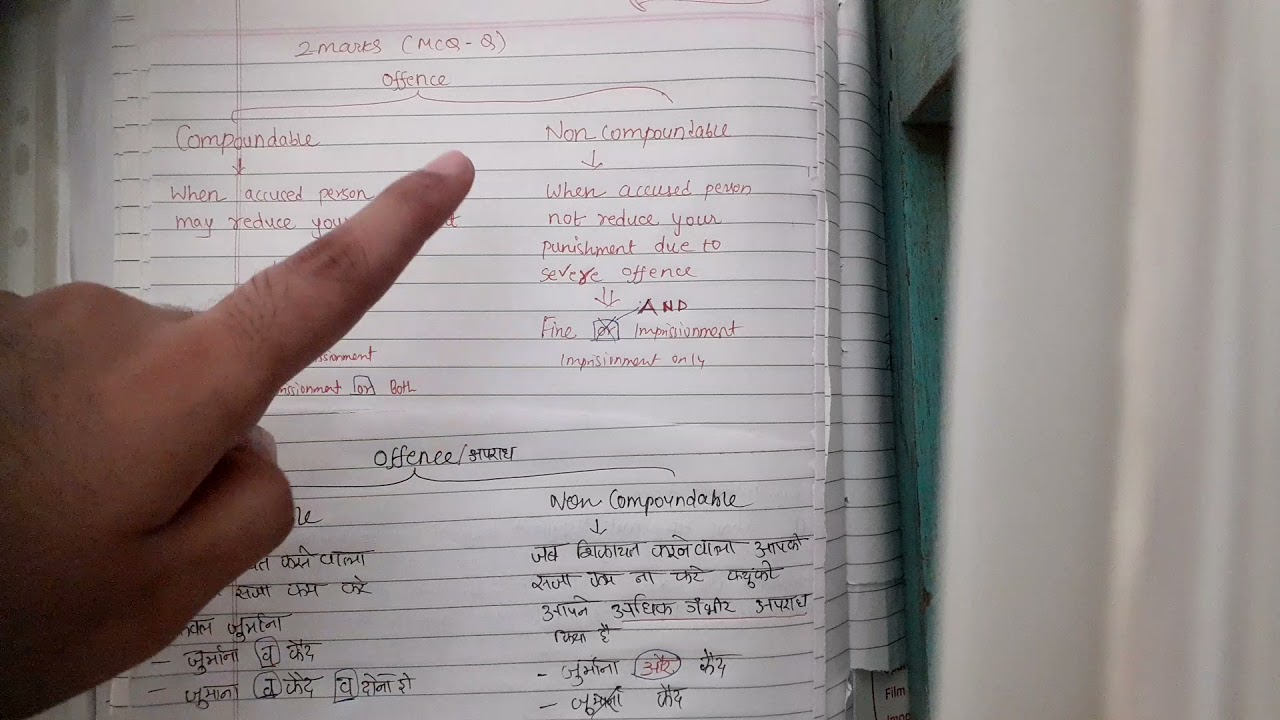 2 marks (MCQ - Q)
Offence
Compoundable
When accuced person
may reduce your
Non Compoundable
When accused person
not reduce your
punishment due to
severe offence
AND
Fine or Imprissionment
Imprisionment only
or Both
Offence/अपराध
करने वाला
सजा कम करे
जुर्माना
- जुर्माना व कैद
- जुर्माना व कैद व दोनो हो
Non Compoundable
जब शिकायत करने वाला आपको
सजा कम ना करे क्युंकी
आपने अधिक गंभीर अपराध
किया है
- जुर्माना और कैद
- जुर्माना कैद
Film